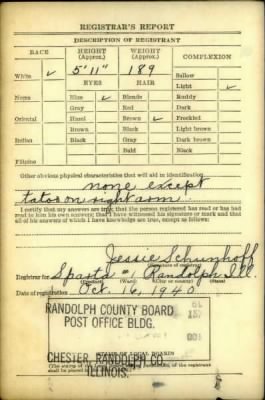 REGISTRAR'S REPORT
DESCRIPTION OF REGISTRANT
RACE HEIGHT (Approx.) WEIGHT (Approx.) COMPLEXION
5' 11" 189
White ✓ EYES HAIR Sallow
Light ✓
Negro Blue ✓ Blonde Ruddy
Gray Red Dark
Oriental Hazel Brown ✓ Freckled
Brown Black Light brown
Indian Black Gray Dark brown
Bald Black
Filipino
Other obvious physical characteristics that will aid in identification
none except
tatoo on right arm
I certify that my answers are true; that the person registered has read or has had
read to him his own answers; that I have witnessed his signature or mark and that
all of his answers of which I have knowledge are true, except as follows:
Jessie Schumhoff
(Signature of registrar)
Registrar for Sparta #1 Randolph Ill.
(Precinct) (Ward) (City or county) (State)
Date of registration Oct. 16, 1940
RANDOLPH COUNTY BOARD
POST OFFICE BLDG.
CHESTER, RANDOLPH CO.
ILLINOIS.